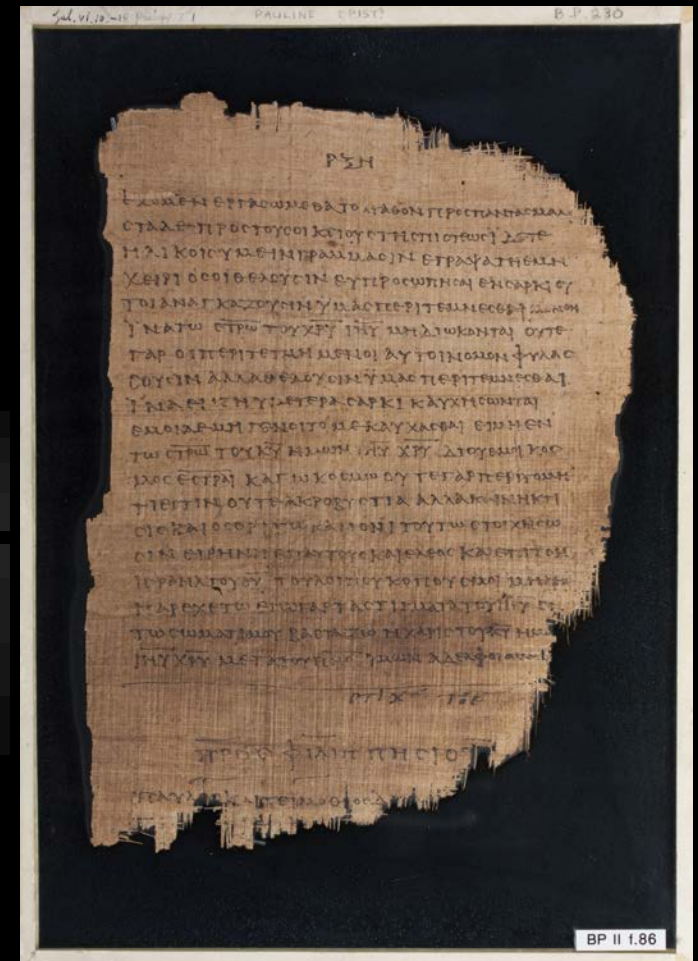 Gal. VI. 10.–18 Phil. I. 1 PAULINE EPIST. B.P. 230
ΡΞΗ
ΕΧΟΜΕΝ ΕΡΓΑΣΩΜΕΘΑ ΤΟ ΑΓΑΘΟΝ ΠΡΟΣ ΠΑΝΤΑΣ ΜΑΛΙ
ΣΤΑ ΔΕ ΠΡΟΣ ΤΟΥΣ ΟΙΚΕΙΟΥΣ ΤΗΣ ΠΙΣΤΕΩΣ ΙΔΕΤΕ
ΗΛΙΚΟΙΣ ΥΜΕΙΝ ΓΡΑΜΜΑΣΙΝ ΕΓΡΑΨΑ ΤΗ ΕΜΗ
ΧΕΙΡΙ ΟΣΟΙ ΘΕΛΟΥΣΙΝ ΕΥΠΡΟΣΩΠΗΣΑΙ ΕΝ ΣΑΡΚΙ ΟΥ
ΤΟΙ ΑΝΑΓΚΑΖΟΥΣΙΝ ΥΜΑΣ ΠΕΡΙΤΕΜΝΕΣΘΑΙ ΜΟΝΟΝ
ΙΝΑ ΤΩ ΣΤΡΩ ΤΟΥ ΧΡΥ ΙΗΥ ΜΗ ΔΙΩΚΟΝΤΑΙ ΟΥΤΕ
ΓΑΡ ΟΙ ΠΕΡΙΤΕΤΜΗΜΕΝΟΙ ΑΥΤΟΙ ΝΟΜΟΝ ΦΥΛΑΣ
ΣΟΥΣΙΝ ΑΛΛΑ ΘΕΛΟΥΣΙΝ ΥΜΑΣ ΠΕΡΙΤΕΜΝΕΣΘΑΙ
ΙΝΑ ΕΝ ΤΗ ΥΜΕΤΕΡΑ ΣΑΡΚΙ ΚΑΥΧΗΣΩΝΤΑΙ
ΕΜΟΙ ΔΕ ΜΗ ΓΕΝΟΙΤΟ ΜΕ ΚΑΥΧΑΣΘΑΙ ΕΙ ΜΗ ΕΝ
ΤΩ ΣΤΡΩ ΤΟΥ ΚΥ ΗΜΩΝ ΙΗΥ ΧΡΥ ΔΙ ΟΥ ΕΜΟΙ ΚΟΣ
ΜΟΣ ΕΣΤΡΑΙ ΚΑΓΩ ΚΟΣΜΩ ΟΥΤΕ ΓΑΡ ΠΕΡΙΤΟΜΗ
ΤΙ ΕΣΤΙΝ ΟΥΤΕ ΑΚΡΟΒΥΣΤΙΑ ΑΛΛΑ ΚΑΙΝΗ ΚΤΙ
ΣΙΣ ΚΑΙ ΟΣΟΙ ΤΩ ΚΑΝΟΝΙ ΤΟΥΤΩ ΣΤΟΙΧΗΣΩ
ΣΙΝ ΕΙΡΗΝΗ ΕΠ ΑΥΤΟΥΣ ΚΑΙ ΕΛΕΟΣ ΚΑΙ ΕΠΙ ΤΟΝ
ΙΣΡΑΗΛ ΤΟΥ ΘΥ ΤΟΥ ΛΟΙΠΟΥ ΚΟΠΟΥΣ ΜΟΙ
ΠΑΡΕΧΕΤΩ ΕΓΩ ΓΑΡ ΤΑ ΣΤΙΓΜΑΤΑ ΤΟΥ ΙΗΥ ΕΝ
ΤΩ ΣΩΜΑΤΙ ΜΟΥ ΒΑΣΤΑΖΩ Η ΧΑΡΙΣ ΤΟΥ ΚΥ ΗΜΩ
ΙΗΥ ΧΡΥ ΜΕΤΑ ΤΟΥ ΥΜΩΝ ΑΔΕΛΦΟΙ
ΣΤΙΧ ΤΟΕ
ΠΡΟΣ ΦΙΛΙΠΠΗΣΙΟΥΣ
ΠΑΥΛΟΣ ΚΑΙ ΤΕΙΜΟΘΕΟΣ
BP II f.86